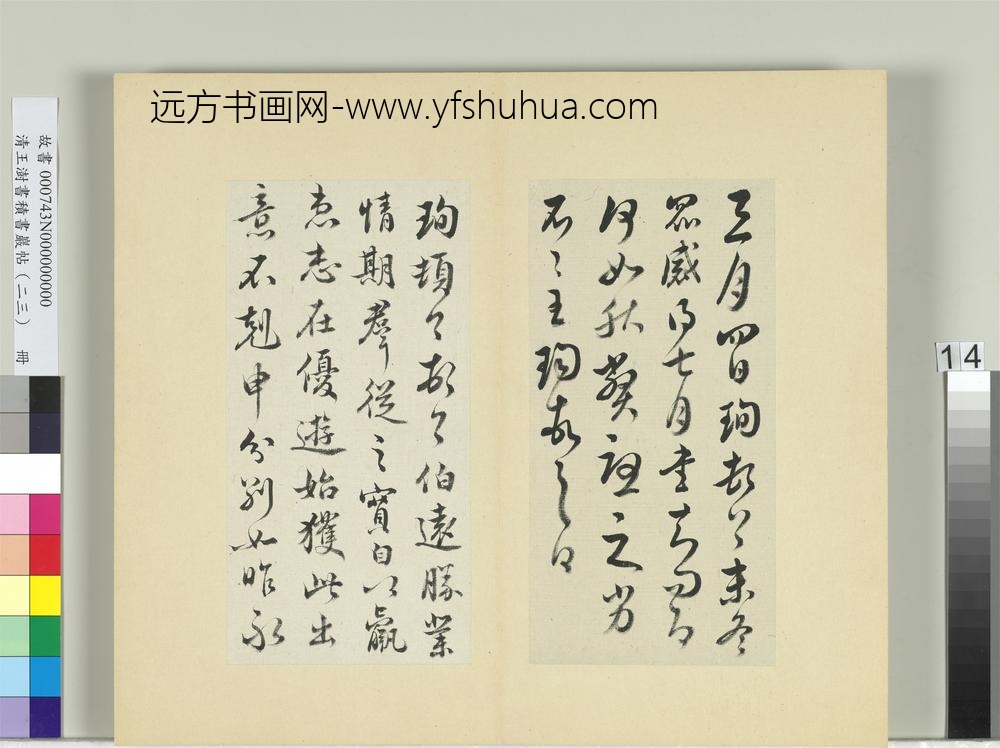 远方书画网-www.yfshuhua.com
三月四日珣頓首末冬
眾感得七月書知問為
何如秋
不〻王珣敬之曰
珣頓〻首〻伯遠勝業
情期羣從之寶自以羸
患志在優遊始獲此出
意不剋申分別如昨永
故書 000743N000000000
清王澍書積書巖帖（二三） 冊
14